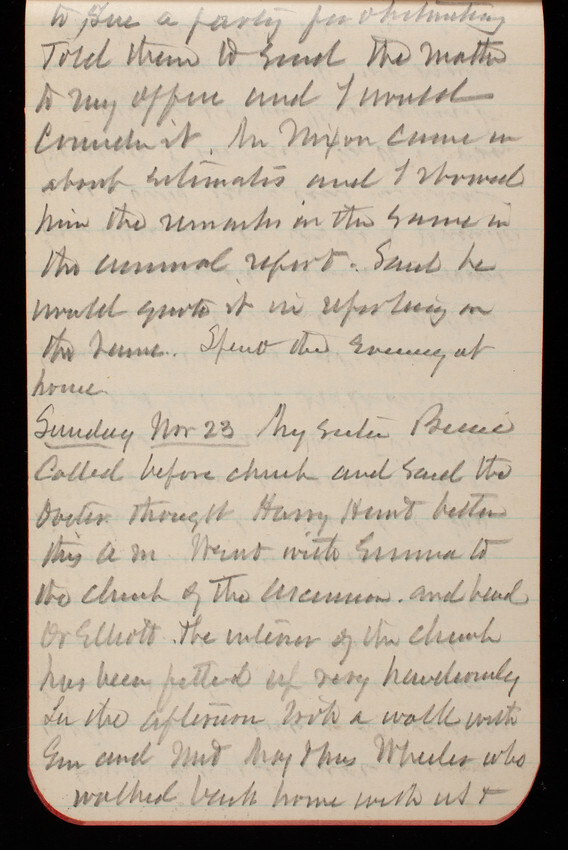 to sue a party for obstructing
Told them to send the matter
to my office and I would
Consider it. Mr Nixon came in
about estimates and I showed
him the remarks in the same in
the annual report. Said he
would quote it in reporting on
the same. Spent the Evening at
home
Sunday Nov 23 My sister Bessie
Called before church and said the
Doctor thought Harry Hunt better
this a m Went with Emma to
the church of the ascension. and heard
Dr Elliott. The interior of the church
has been fitted up very handsomely
In the afternoon took a walk with
Em and met Maj & Mrs Wheeler who
walked back home with us &